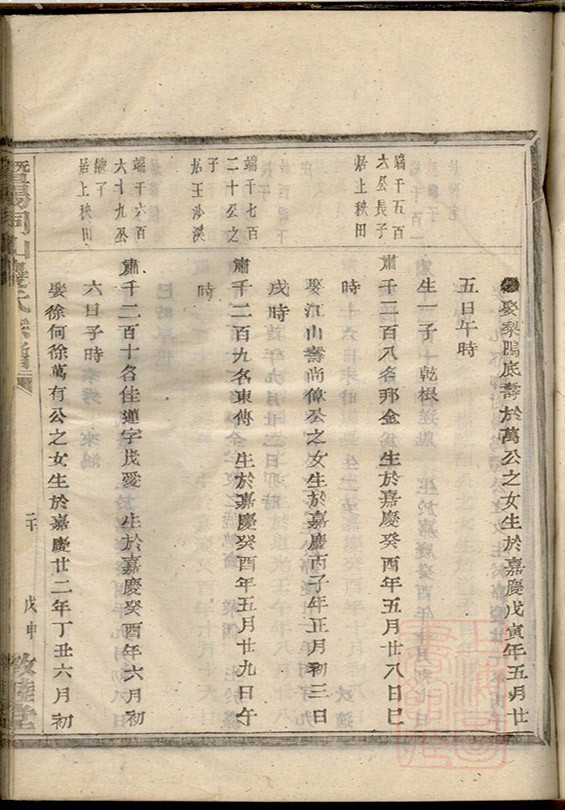 娶梨隝底壽於萬公之女生於嘉慶戊寅年五月廿
五日午時
生一子乾根
端千五百
六公長子
居上秧田
肅千二百八名邦金 生於嘉慶癸酉年五月廿八日巳
時
娶江山壽尚偉公之女生於嘉慶丙子年正月初三日
戌時
端千七百
二十公之
子
居王沙溪
肅千二百九名東傳 生於嘉慶癸酉年五月廿九日午
時
端千六百
六十九公
繼子
居上秧田
肅千二百十名佳蓮字茂愛 生於嘉慶癸酉年六月初
六日子時
娶徐何徐萬有公之女生於嘉慶廿二年丁丑六月初
暨陽同山壽氏宗譜
二十
戊申
敦睦堂